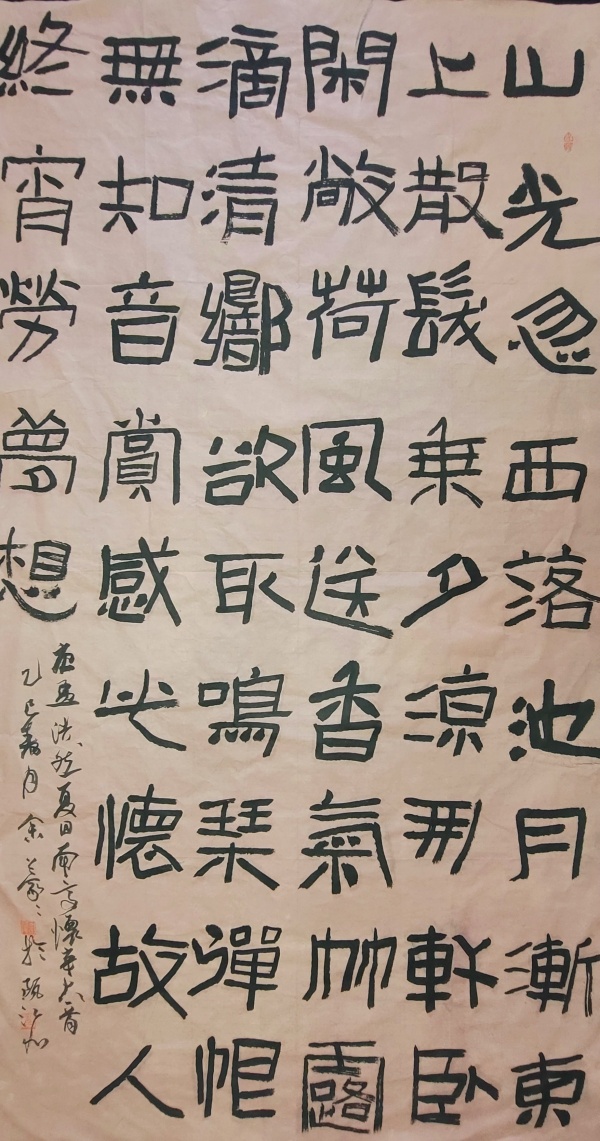 山光忽西落池月漸東
上散髮乘夕涼开軒臥
閑敞荷風送香氣竹露
滴清響欲取鳴琴彈恨
無知音賞感此懷故人
終宵勞夢想
唐孟浩然夏日南亭懷辛大首
乙巳 月 余 於